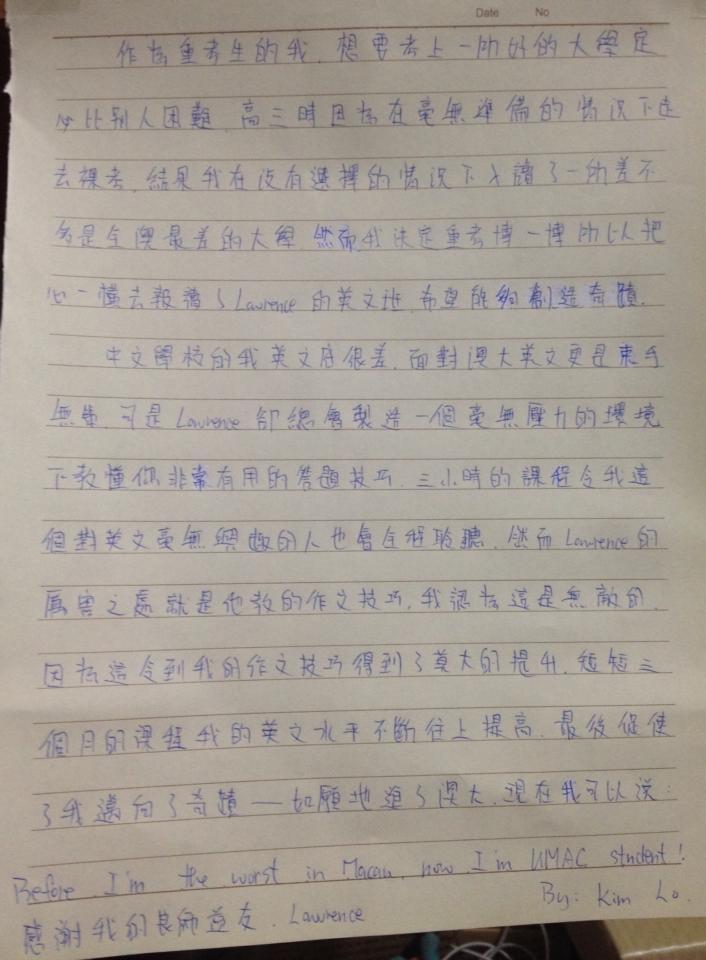 Date No
作為重考生的我，想要考上一所好的大學定
必比別人困難，高三時因為在毫無準備的情況下走
去裸考，結果我在沒有選擇的情況下入讀了一所差不
多是全澳最差的大學，然而我決定重考博一博所以把
心一橫去報讀了Lawrence的英文班，希望能夠創造奇蹟．
中文學校的我英文底很差，面對澳大英文更是束手
無策，可是Lawrence卻總會製造一個毫無壓力的環境
下教懂你非常有用的答題技巧．三小時的課程令我這
個對英文毫無興趣的人也會全程聆聽．然而Lawrence的
厲害之處就是他教的作文技巧，我認為這是無敵的．
因為這令到我的作文技巧得到了莫大的提升．短短三
個月的課程我的英文水平不斷往上提高．最後促使
了我邁向了奇蹟——如願地進了澳大．現在我可以說：
Before I'm the worst in Macau, now I'm UMAC student!
By: Kim Lo.
感謝我的良師益友．Lawrence